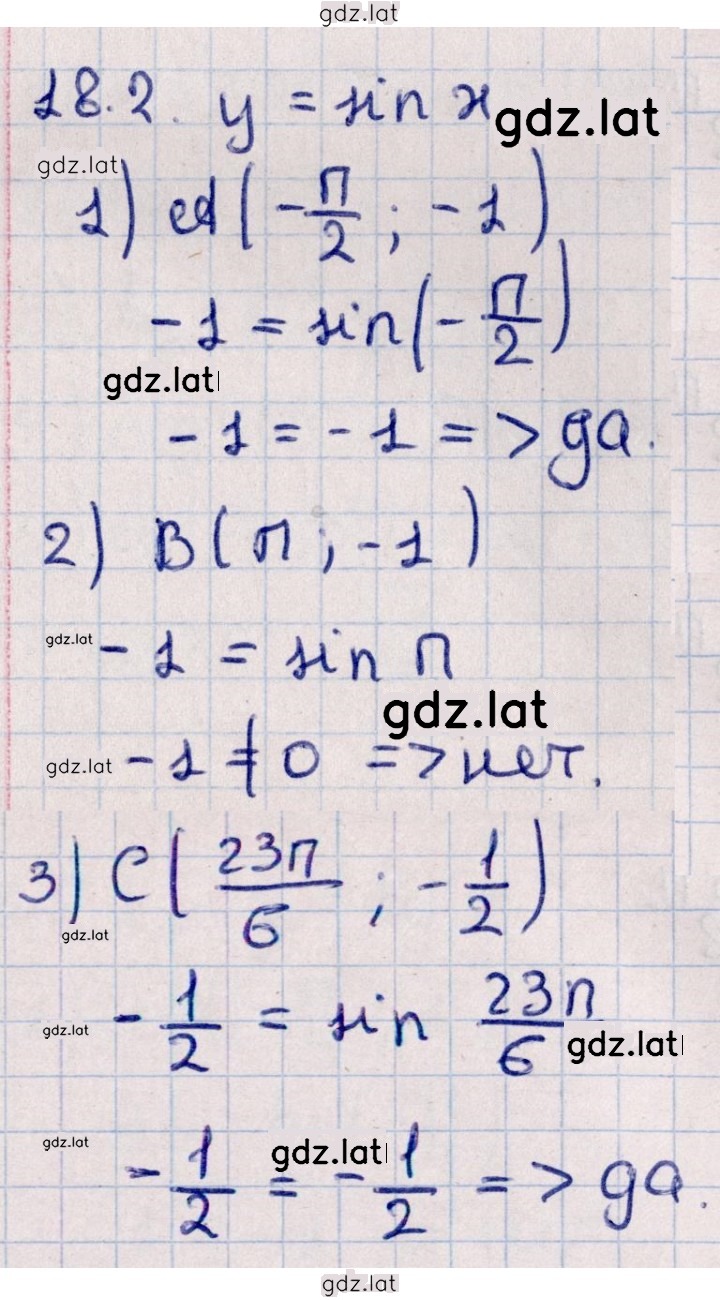 gdz.lat
18.2. y = sin x
gdz.lat
gdz.lat
1) A(-π/2 ; -1)
-1 = sin(-π/2)
gdz.lat
-1 = -1 => да.
2) B(π ; -1)
gdz.lat -1 = sin π
gdz.lat
gdz.lat -1 ≠ 0 => нет.
3) C(23π/6 ; -1/2)
gdz.lat
gdz.lat -1/2 = sin 23π/6
gdz.lat
gdz.lat
gdz.lat
-1/2 = -1/2 => да.
gdz.lat